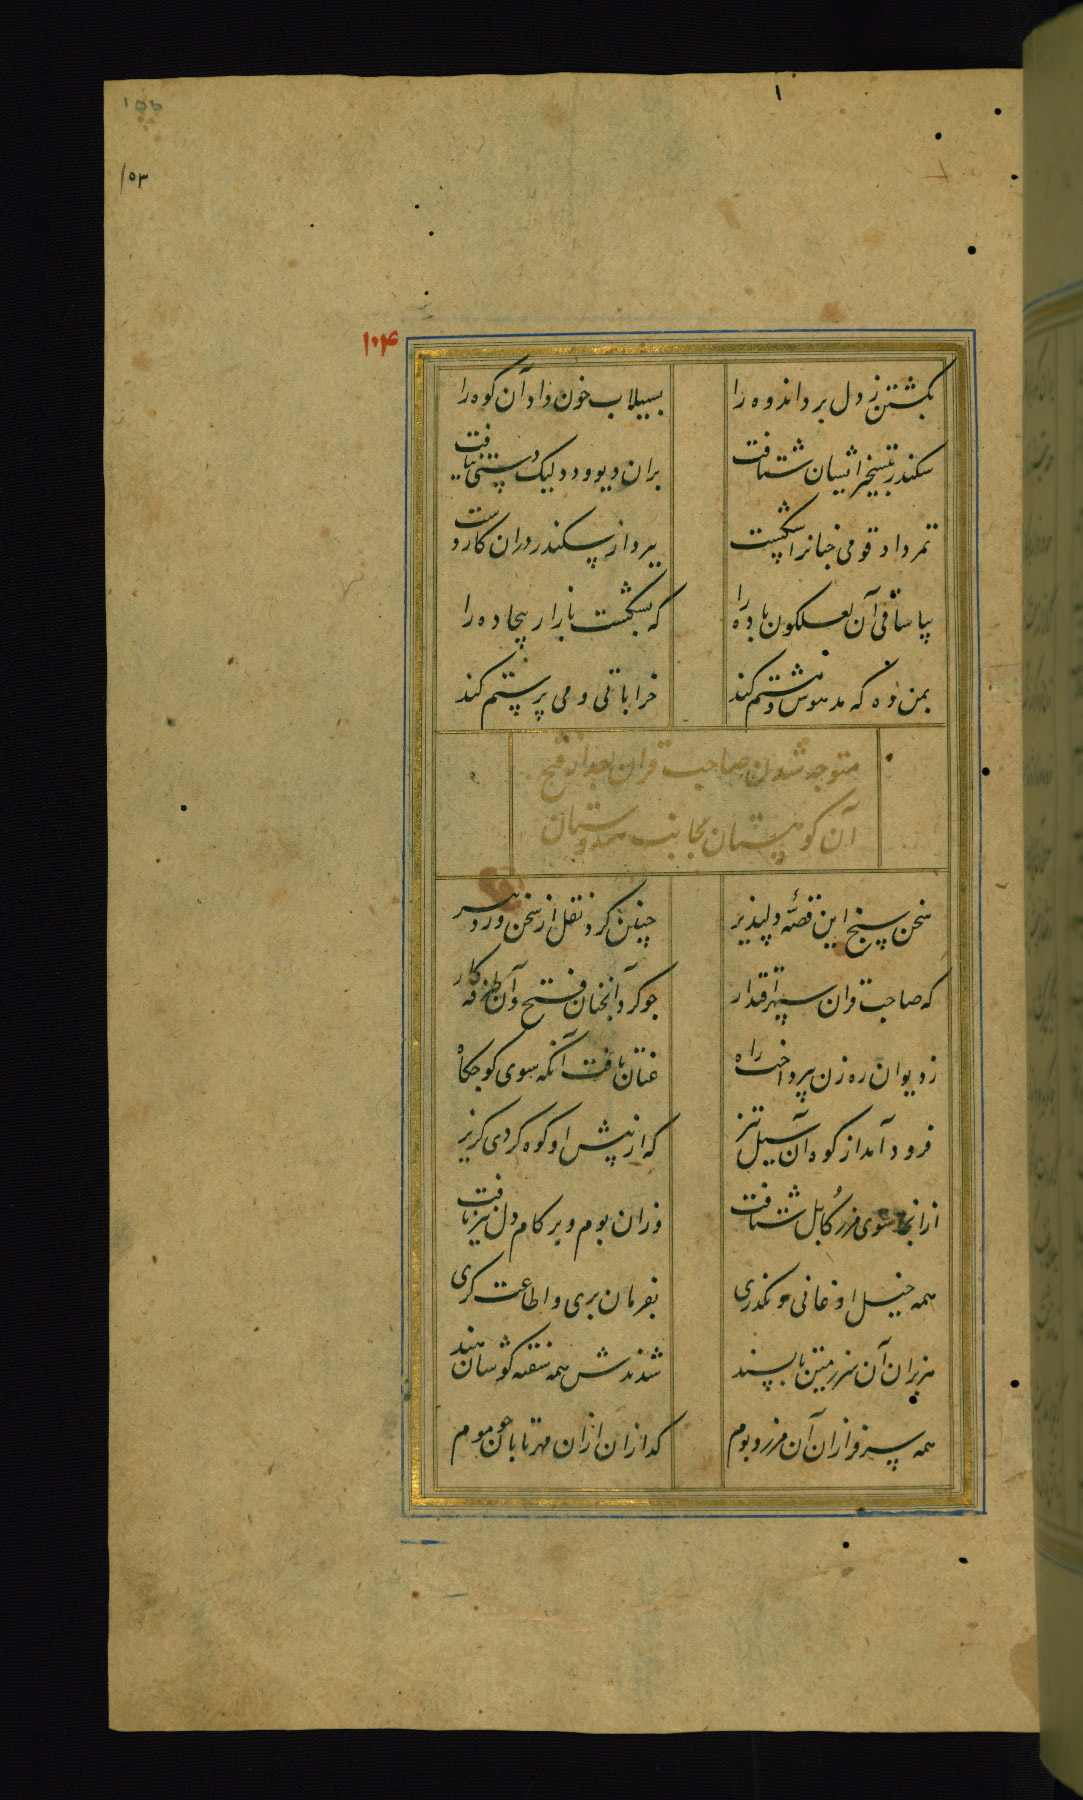 ۱۵۵
۱
۱۵۳
۱۰۴
بکشتن ز دل برد اندوه را
بسیلاب خون داد آن کوه را
سکندر بتسخیر ایشان شتافت
بران دیو و دد لیک دستی نیافت
تمرداد قومی چنانرا شکست
ببرد از سکندر دران کار دست
بیا ساقی آن لعلکون باده را
که بشکست بازار بیجاده را
بمن ده که مدهوش و مستم کند
خراباتی و می پرستم کند
متوجه شدن صاحب قران بعد از فتح
آن کوهستان بجانب هندوستان
سخن سنج این قصهٔ دلپذیر
چنین کرد نقل از سخن ورد
که صاحب قران سپهر اقتدار
چو کرد آنچنان فتح و آن طرفه کار
ز دیوان ره زن بپرداخت راه
عنان تافت آنکه سوی کوچکاه
فرود آمد از کوه آن سیل تیز
که از پیش او کوه کردی کریز
از انجا سوی مرز کابل شتافت
وزان بوم و بر کام دل نیز یافت
همه خیل اوغانی و نکدری
بفرمان بری و اطاعت کری
هزبران آن سرزمین تا بسند
شدندش همه سفته کوشان هند
همه سرفرازان آن مرز و بوم
کدازان ازان مهر تابان چو موم